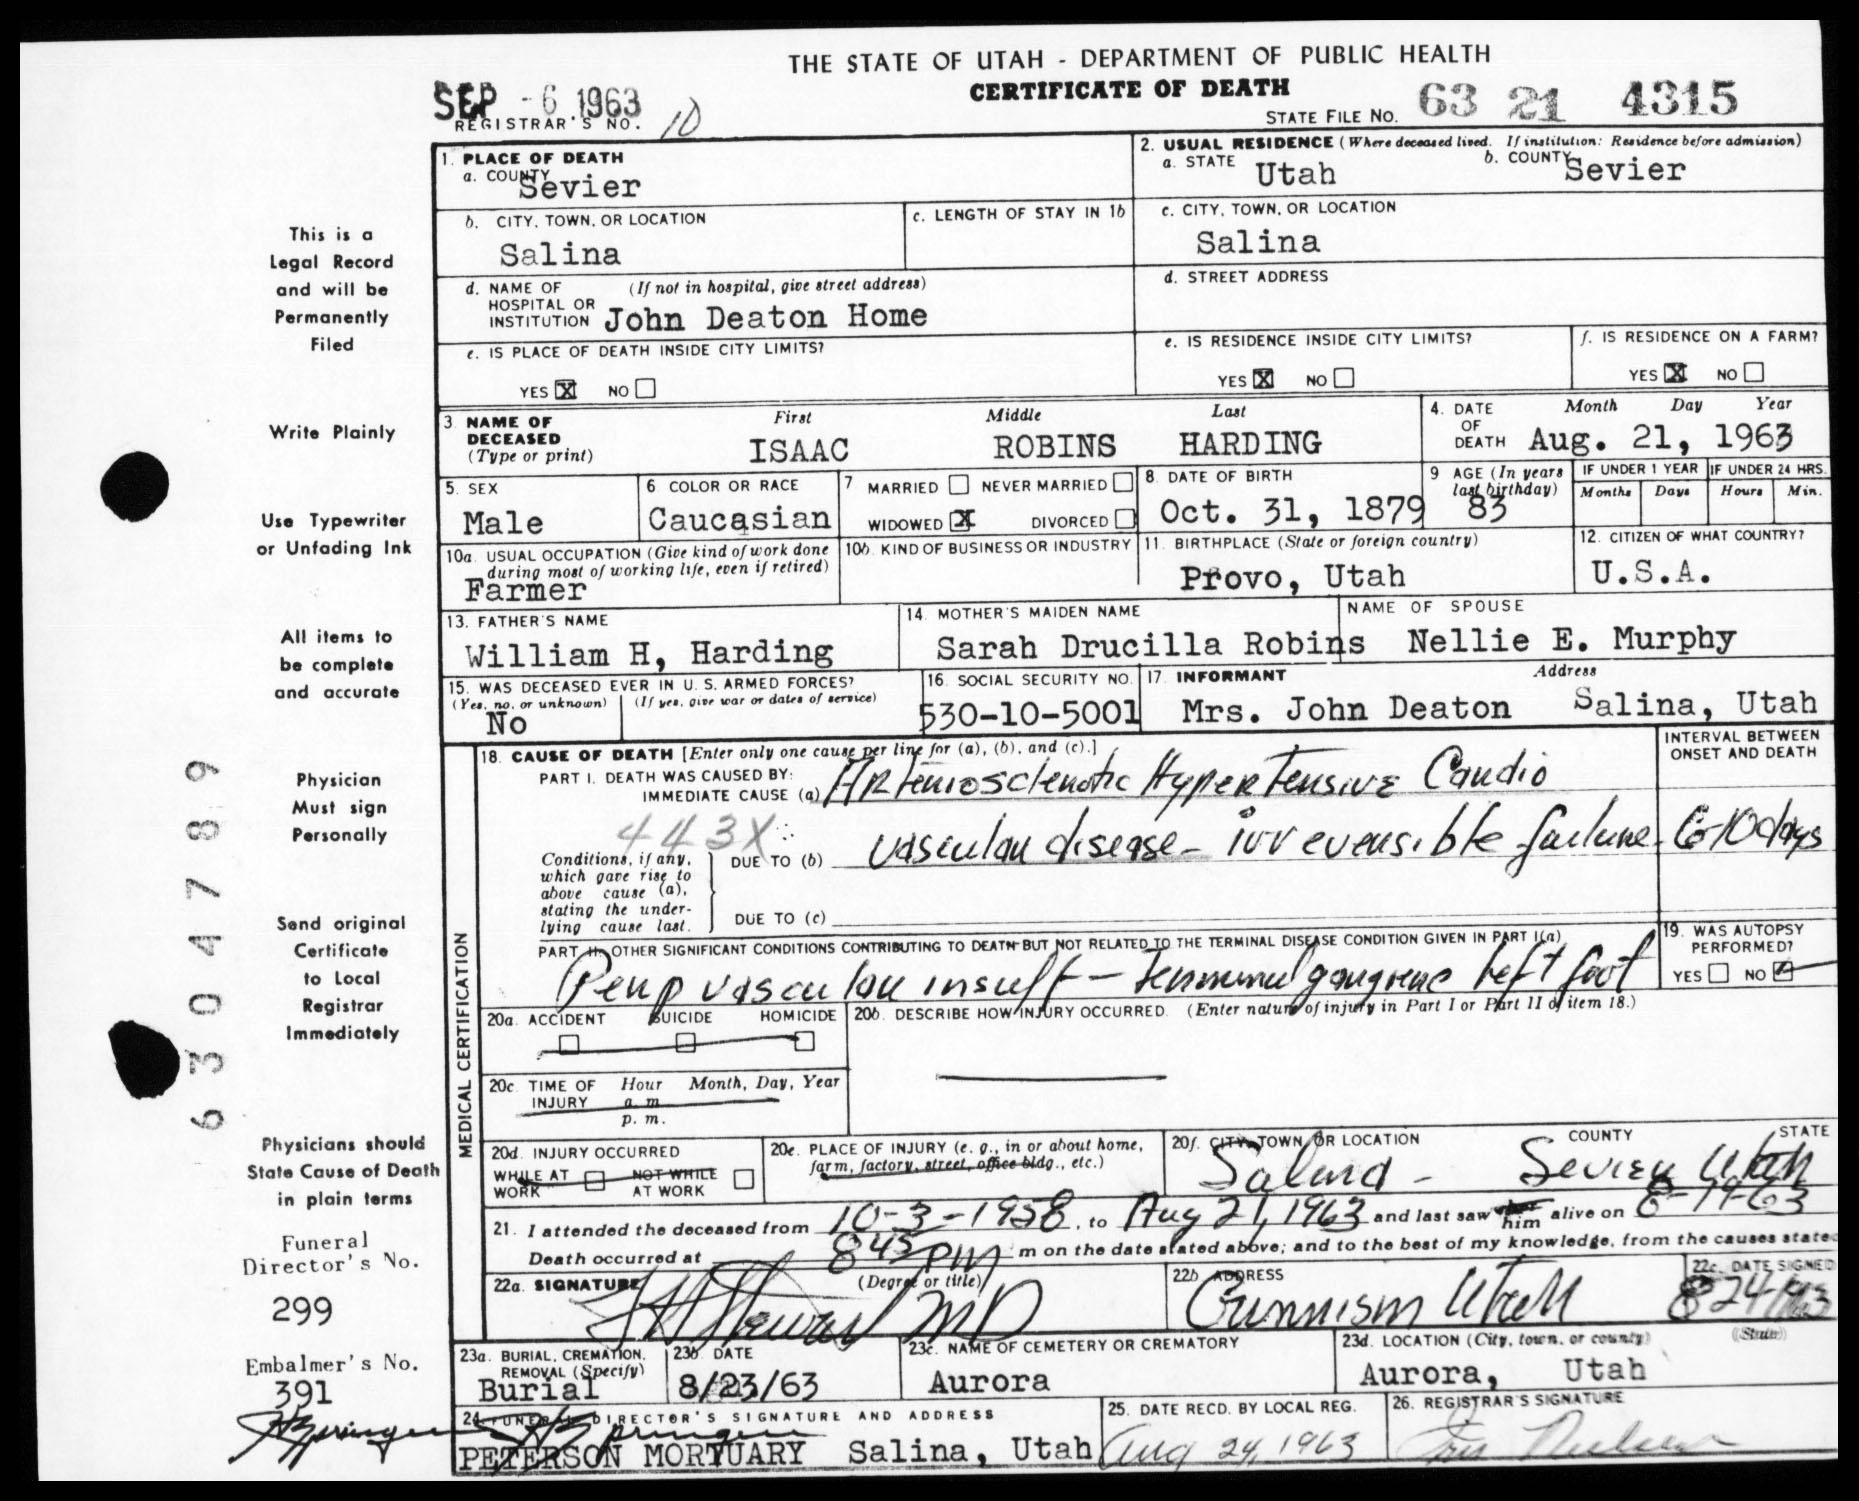 THE STATE OF UTAH - DEPARTMENT OF PUBLIC HEALTH
CERTIFICATE OF DEATH
SEP -6 1963
REGISTRAR'S NO. 10
STATE FILE NO. 63 21 4315
1. PLACE OF DEATH
a. COUNTY
Sevier
2. USUAL RESIDENCE (Where deceased lived. If institution: Residence before admission)
a. STATE Utah b. COUNTY Sevier
b. CITY, TOWN, OR LOCATION
Salina
c. LENGTH OF STAY IN 1b
c. CITY, TOWN, OR LOCATION
Salina
d. NAME OF HOSPITAL OR INSTITUTION (If not in hospital, give street address)
John Deaton Home
d. STREET ADDRESS
e. IS PLACE OF DEATH INSIDE CITY LIMITS?
YES X NO
e. IS RESIDENCE INSIDE CITY LIMITS?
YES X NO
f. IS RESIDENCE ON A FARM?
YES X NO
3. NAME OF DECEASED (Type or print)
First Middle Last
ISAAC ROBINS HARDING
4. DATE OF DEATH
Month Day Year
Aug. 21, 1963
5. SEX
Male
6 COLOR OR RACE
Caucasian
7 MARRIED NEVER MARRIED
WIDOWED X DIVORCED
8. DATE OF BIRTH
Oct. 31, 1879
9 AGE (In years last birthday)
83
IF UNDER 1 YEAR
Months Days
IF UNDER 24 HRS.
Hours Min.
10a. USUAL OCCUPATION (Give kind of work done during most of working life, even if retired)
Farmer
10b. KIND OF BUSINESS OR INDUSTRY
11. BIRTHPLACE (State or foreign country)
Provo, Utah
12. CITIZEN OF WHAT COUNTRY?
U.S.A.
13. FATHER'S NAME
William H, Harding
14. MOTHER'S MAIDEN NAME
Sarah Drucilla Robins
NAME OF SPOUSE
Nellie E. Murphy
15. WAS DECEASED EVER IN U. S. ARMED FORCES?
(Yes, no, or unknown) (If yes, give war or dates of service)
No
16. SOCIAL SECURITY NO.
530-10-5001
17. INFORMANT Address
Mrs. John Deaton Salina, Utah
MEDICAL CERTIFICATION
18. CAUSE OF DEATH [Enter only one cause per line for (a), (b), and (c).]
INTERVAL BETWEEN ONSET AND DEATH
PART I. DEATH WAS CAUSED BY:
IMMEDIATE CAUSE (a) Arteriosclerotic Hypertensive Cardio
443X
Conditions, if any, which gave rise to above cause (a), stating the underlying cause last.
DUE TO (b) vascular disease - irreversible failure 6-10 days
DUE TO (c)
PART II. OTHER SIGNIFICANT CONDITIONS CONTRIBUTING TO DEATH BUT NOT RELATED TO THE TERMINAL DISEASE CONDITION GIVEN IN PART I(a)
Perip vascular insuff - terminal gangrene left foot
19. WAS AUTOPSY PERFORMED?
YES NO
20a. ACCIDENT SUICIDE HOMICIDE
20b. DESCRIBE HOW INJURY OCCURRED. (Enter nature of injury in Part I or Part II of item 18.)
20c. TIME OF INJURY Hour Month, Day, Year
a. m.
p. m.
20d. INJURY OCCURRED
WHILE AT WORK NOT WHILE AT WORK
20e. PLACE OF INJURY (e. g., in or about home, farm, factory, street, office bldg., etc.)
20f. CITY, TOWN, OR LOCATION COUNTY STATE
Salina - Sevier Utah
21. I attended the deceased from 10-3-1958, to Aug 21, 1963 and last saw him alive on 8-19-63
Death occurred at 845 pm m on the date stated above; and to the best of my knowledge, from the causes stated
22a. SIGNATURE (Degree or title)
MD
22b ADDRESS
Gunnison Utah
22c. DATE SIGNED
8 24 1963
23a. BURIAL, CREMATION, REMOVAL (Specify)
Burial
23b. DATE
8/23/63
23c. NAME OF CEMETERY OR CREMATORY
Aurora
23d. LOCATION (City, town, or county) (State)
Aurora, Utah
24. FUNERAL DIRECTOR'S SIGNATURE AND ADDRESS
PETERSON MORTUARY Salina, Utah
25. DATE RECD. BY LOCAL REG.
Aug 24, 1963
26. REGISTRAR'S SIGNATURE
This is a
Legal Record
and will be
Permanently
Filed
Write Plainly
Use Typewriter
or Unfading Ink
All items to
be complete
and accurate
Physician
Must sign
Personally
Send original
Certificate
to Local
Registrar
Immediately
Physicians should
State Cause of Death
in plain terms
Funeral
Director's No.
299
Embalmer's No.
391
6304789